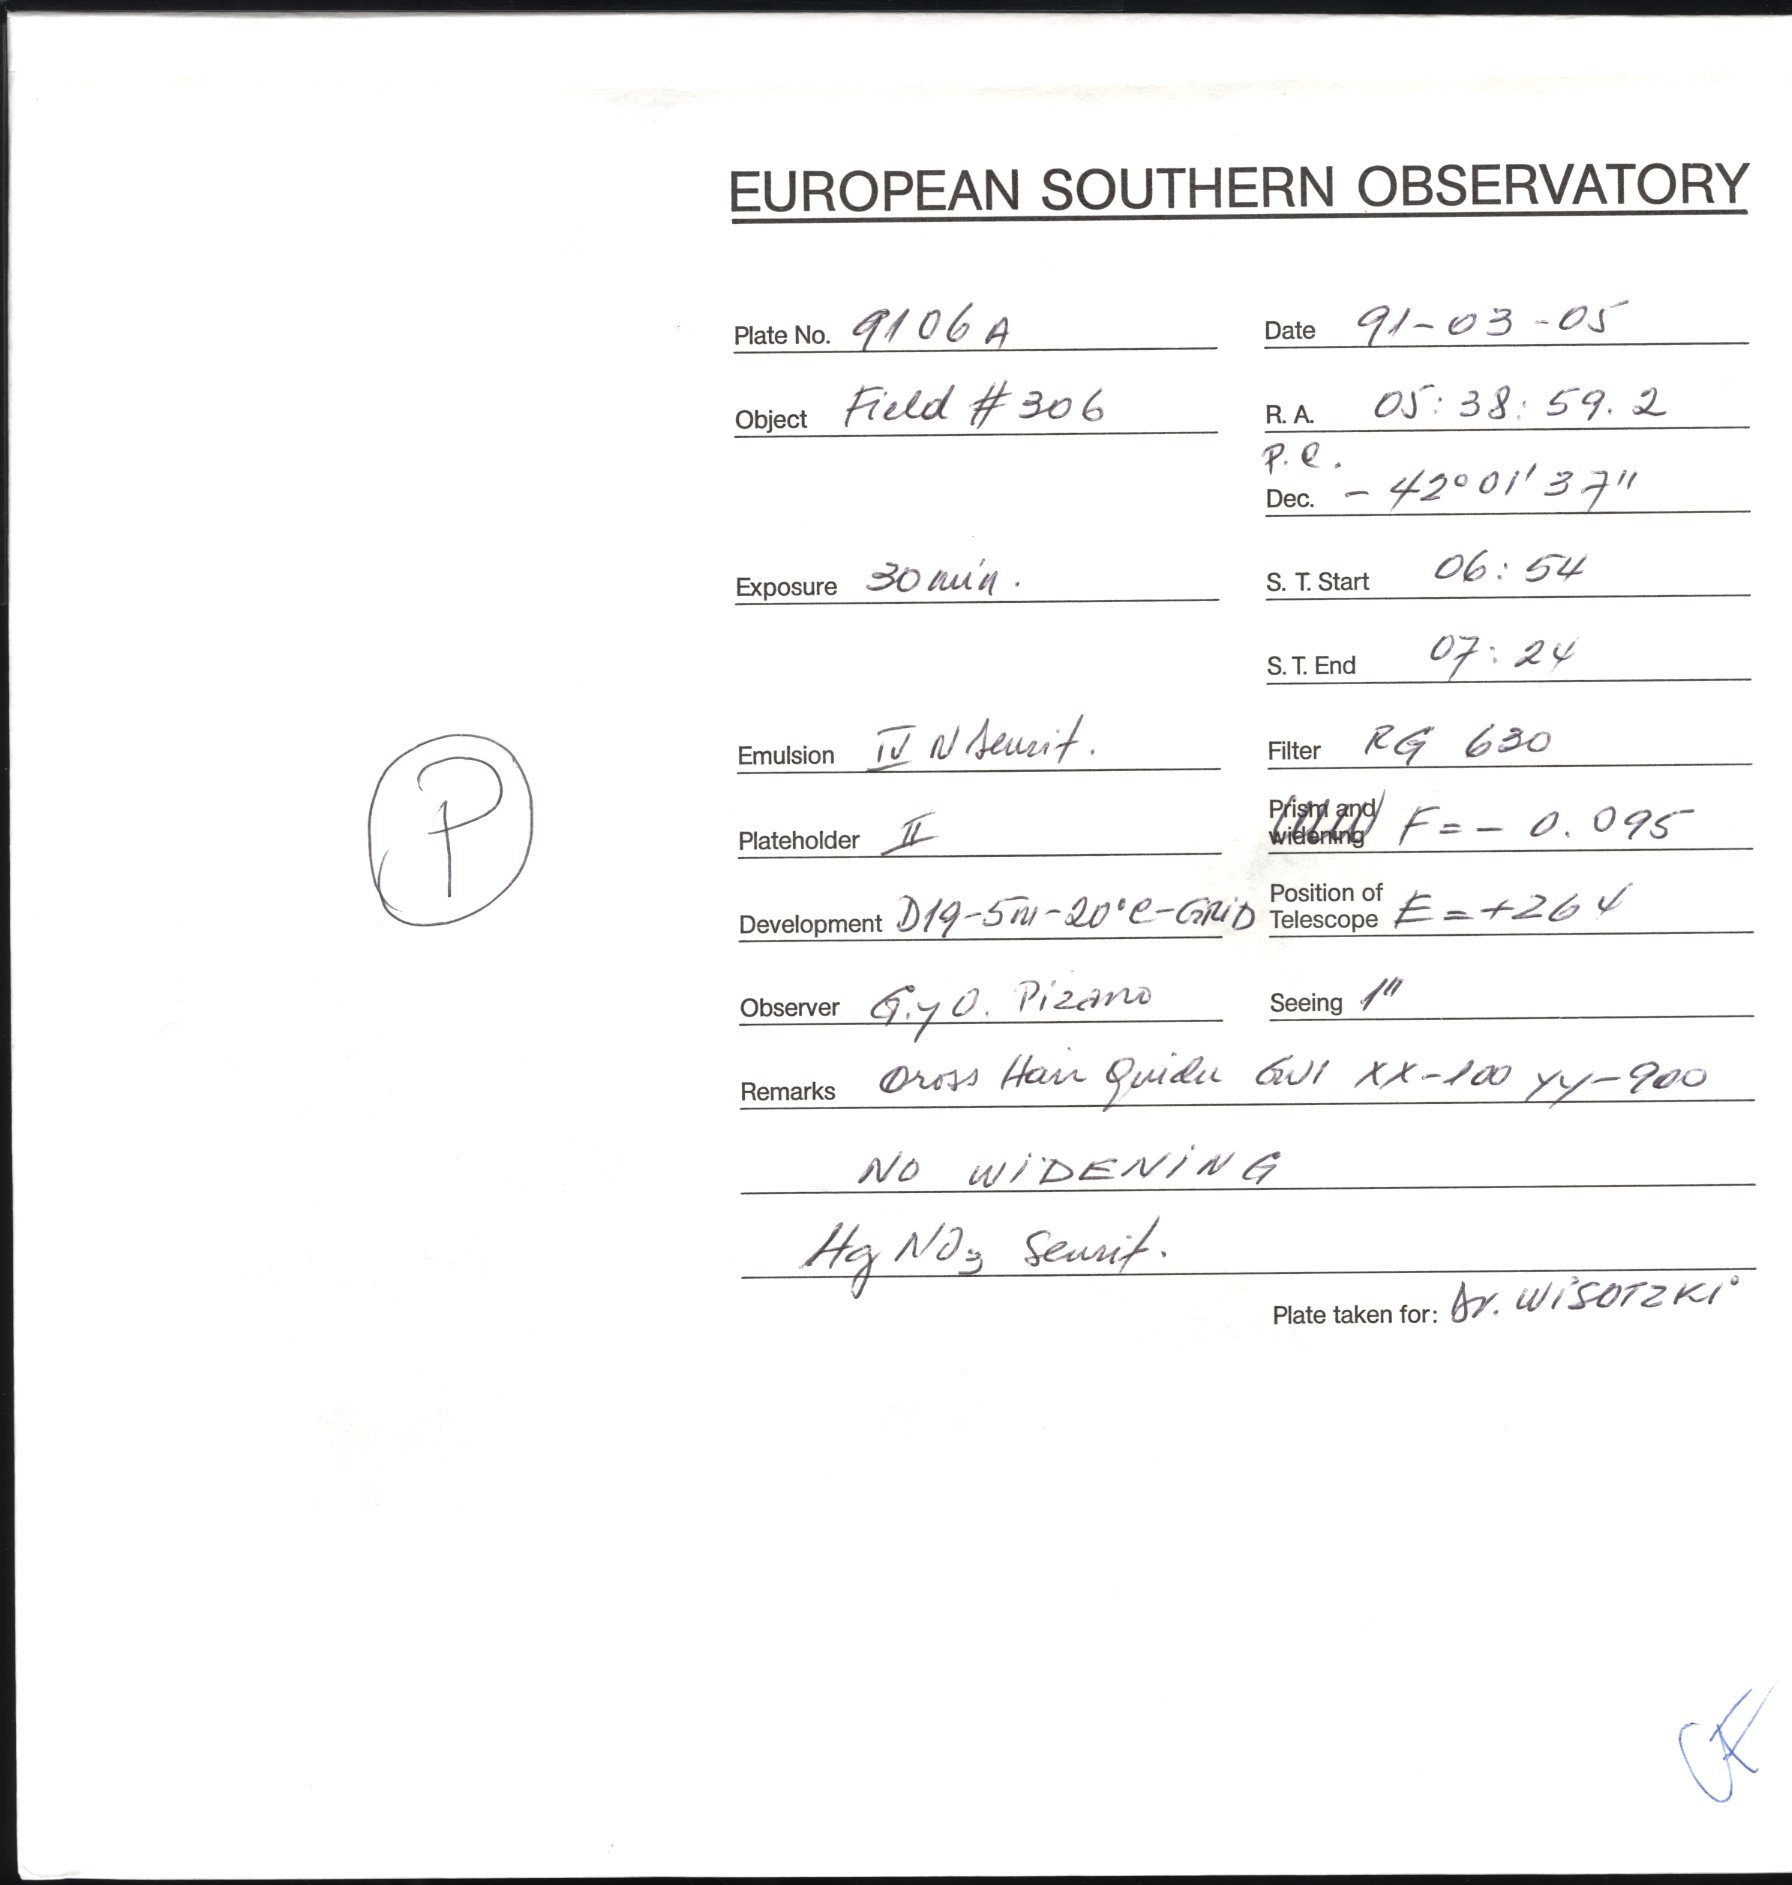 EUROPEAN SOUTHERN OBSERVATORY
Plate No. 9106A Date 91-03-05
Object Field #306 R. A. 05:38:59.2
P.C.
Dec. - 42°01'37"
Exposure 30 min. S. T. Start 06:54
S. T. End 07:24
Emulsion IV N Sensit. Filter RG 630
Plateholder II Prism and widening F = - 0.095
Development D19-5m-20°C-GRiD Position of Telescope E = +264
Observer G. y O. Pizarro Seeing 1"
Remarks Cross Hair Guider XX-100 YY-900
NO WiDENiNG
HgNO3 Sensit.
Plate taken for: Dr. WiSOTZKi
P